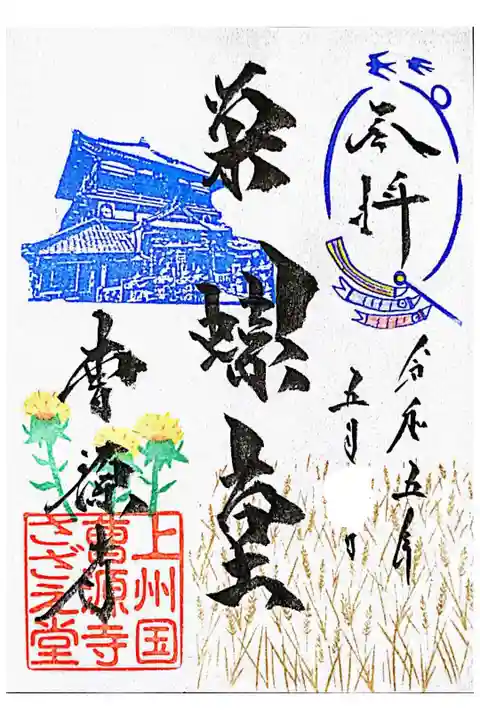 奉拝
令和五年
五月 日
栄螺堂
曹源寺
上州国
曹源寺
さざえ堂